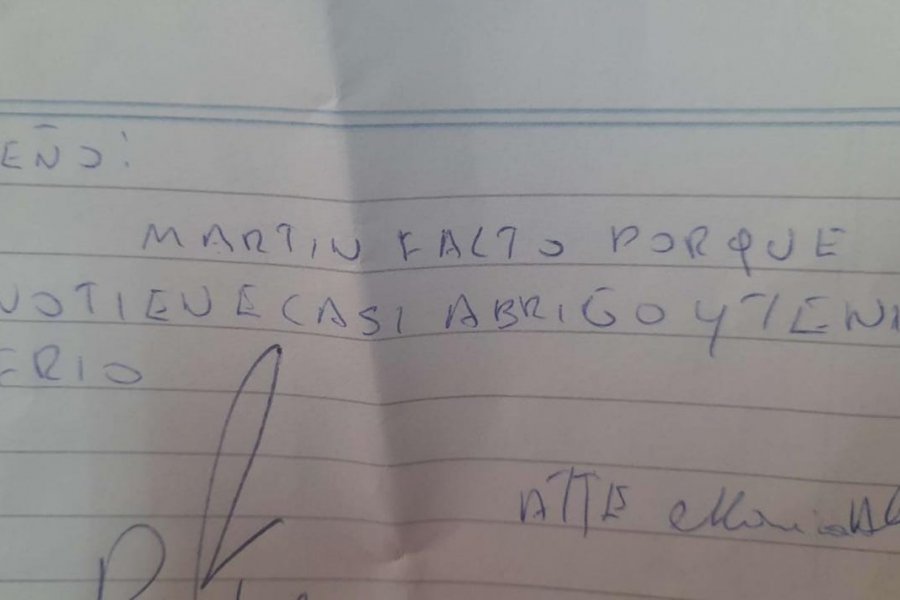 EÑO:
MARTIN FALTO PORQUE
NO TIENE CASI ABRIGO Y TENI
FRIO
ATTE